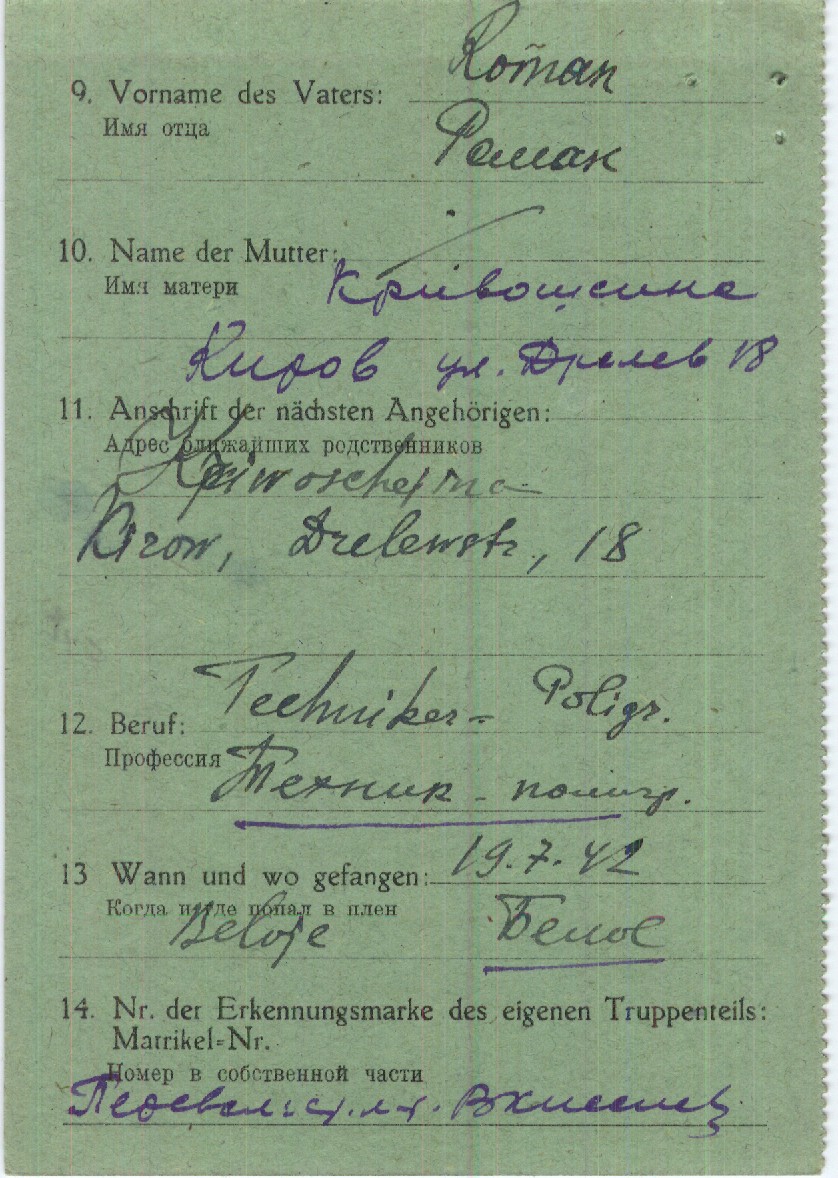 Roman
9. Vorname des Vaters:
Имя отца
Роман
10. Name der Mutter:
Имя матери
Кривошеина
Киров ул. Дрелев 18
11. Anschrift der nächsten Angehörigen:
Адрес ближайших родственников
Kriwoscheina
Kirow, Drelewstr, 18
Techniker- Poligr.
12. Beruf:
Профессия
Техник - полигр.
19.7.42
13 Wann und wo gefangen:
Когда и где попал в плен
Beloje Белое
14. Nr. der Erkennungsmarke des eigenen Truppenteils:
Matrikel-Nr.
Номер в собственной части